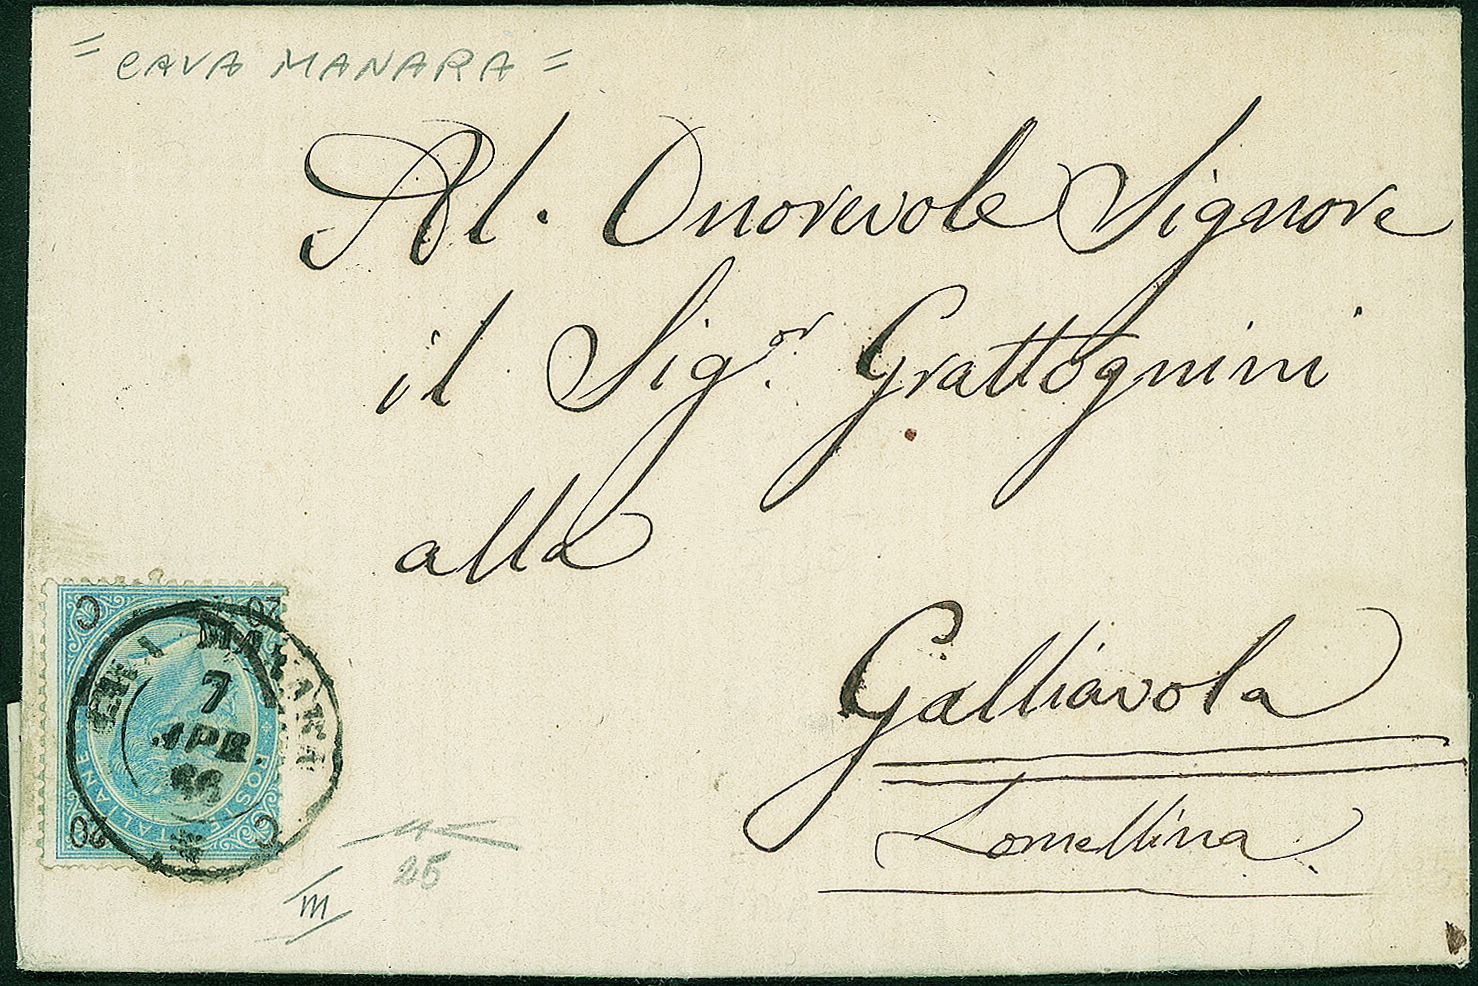 = CAVA MANARA =
Al. Onorevole Signore
il Sig.or Grattognini
alla
Galliavola
Lomellina
C 20
CAVA MANARA
7
APR
66
POSTE ITALIANE
20 C
25
III